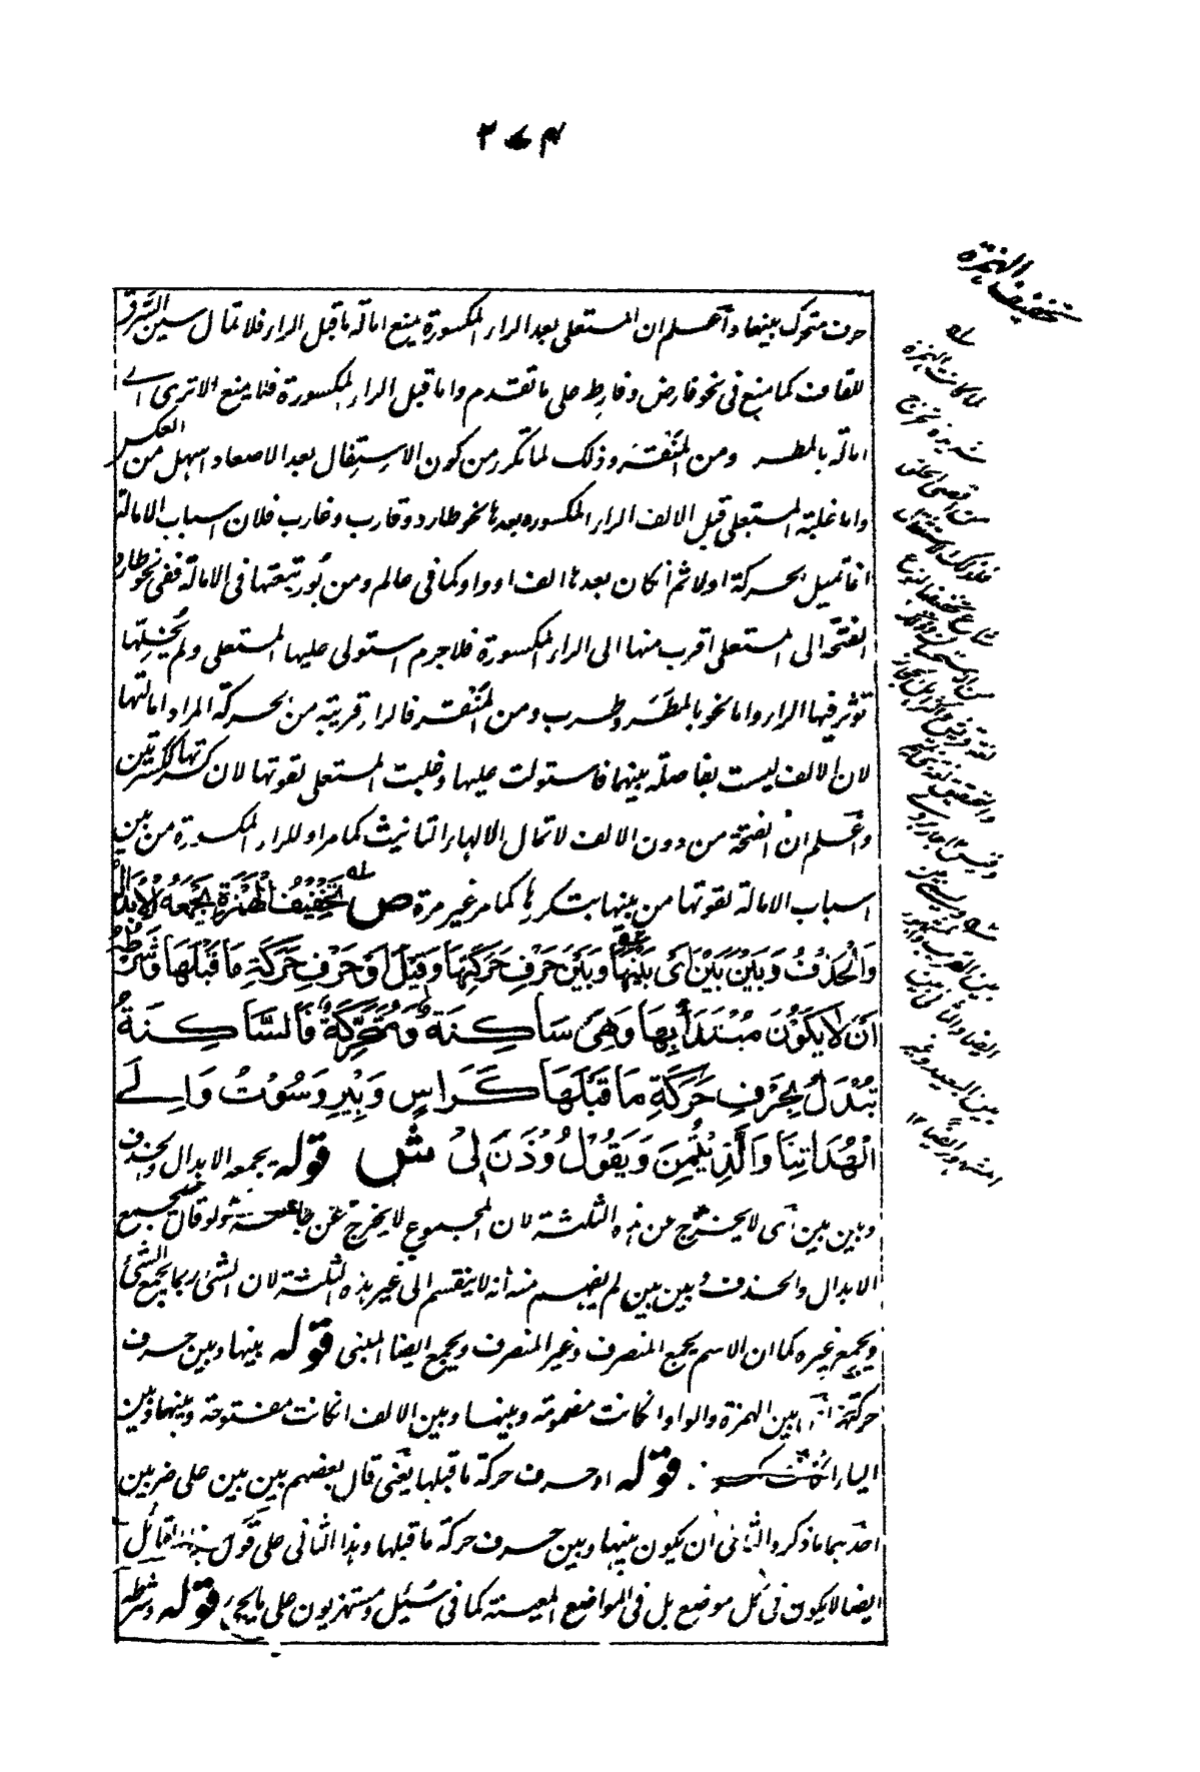 ٢٧٤
تخفيف الهمزة
حرف متحرك بينهما واعلم ان المستعلى بعد الراء المكسورة يمنع امالة ما قبل الراء فلا تمال سين السرق
للقاف كما منع فى نحو فارض وفارط على ما تقدم واما قبل الراء المكسورة فلا يمنع الا ترى الے
امالة بالمطر ومن المنقر وذلك لما تكرر من كون الاستفال بعد الاصعاد اسهل من العكس
واما غلبة المستعلى قبل الالف الراء المكسورة بعدها نحو طارد وقارب وغارب فلان اسباب الامالة
انما تميل الحركة اولا ثم ان كان بعدها الف او واو كما فى عالم ومن نور تبعتها فى الامالة ففى نحو طارد
الفتحة الى المستعلى اقرب منها الى الراء المكسورة فلا جرم استولى عليها المستعلى ولم يخلها
تؤثر فيها الراء واما نحو بالمطر وطرب ومن المنقر فالراء قريبة من حركة المراد امالتها
لان الالف ليست بفاصلة بينهما فاستولت عليها وغلبت المستعلى لقوتها لان كسرتها ككسرتين
واعلم ان الفتحة من دون الالف لا تمال الا لهاء التانيث كما مر او للراء المكسورة من بين
اسباب الامالة لقوتها من بينها بتكررها كما مر غير مرة ص تَخْفِيْفُ الْهَمْزَةِ يَجْمَعُهُ الْاِبْدَالُ
وَالْحَذْفُ وَبَيْنَ بَيْنَ اَىْ بَيْنَهَا وَبَيْنَ حَرْفِ حَرَكَتِهَا وَقِيْلَ اَوْ حَرْفِ حَرَكَةِ مَا قَبْلَهَا وَشَرْطُهٗ
اَنْ لَا يَكُوْنَ مُبْتَدَأً بِهَا وَهِىَ سَاكِنَةٌ وَمُتَحَرِّكَةٌ فَالسَّاكِنَةُ
تُبْدَلُ بِحَرْفِ حَرَكَةِ مَا قَبْلَهَا كَرَاسٍ وَبِيْرٍ وَسُوْتُ وَاِلَے
الْهُدَاتِنَا وَالَّذِيْتُمِنَ وَيَقُوْلُوْذَنْ لِىْ ش قوله يجمعه الابدال والحذف
وبين بين اى لا يخرج من هذه الثلثة لان المجموع لا يخرج عن جامعه ولو قال يجمع
الابدال والحذف وبين بين لم يفهم منه انه لا ينقسم الى غير هذه الثلثة لان الشئ ربما يجمع الشئ
ويجمع غيره كما ان الاسم يجمع المنصرف وغير المنصرف ويجمع ايضا المبنى قوله بينها وبين حرف
حركتها اى بين الهمزة والواو ان كانت مضمومة وبينها وبين الالف ان كانت مفتوحة وبينها وبين
الياء ان كانت مكسورة قوله او حرف حركة ما قبلها يعنى قال بعضهم بين بين على ضربين
احدهما ما ذكر والثانى ان يكون بينها وبين حرف حركة ما قبلها وهذا الثانى على قول هذا القائل
ايضا لا يكون فى كل موضع بل فى المواضع المعينة كما فى سُئِل ومستهزيون على ما يجئ قوله وشرطه
له
لما كانت الهمزة
شديدة تخرج
من اقصى الحلق
بين السيد وغير
المشهور ايضا ١٢